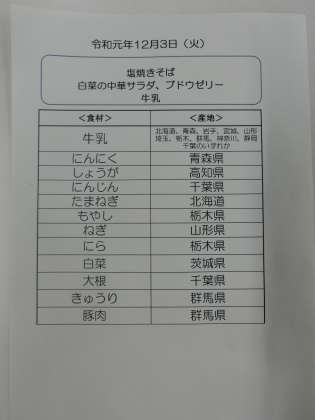 令和元年12月3日（火）
塩焼きそば
白菜の中華サラダ、ブドウゼリー
牛乳
＜食材＞ ＜産地＞
牛乳 北海道、青森、岩手、宮城、山形
埼玉、栃木、群馬、神奈川、静岡
千葉のいずれか
にんにく 青森県
しょうが 高知県
にんじん 千葉県
たまねぎ 北海道
もやし 栃木県
ねぎ 山形県
にら 栃木県
白菜 茨城県
大根 千葉県
きゅうり 群馬県
豚肉 群馬県